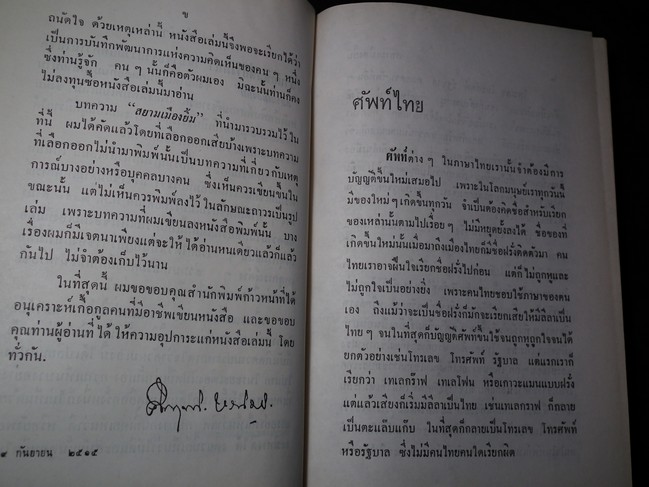 ข
ถนัดใจ ด้วยเหตุเหล่านี้ หนังสือเล่มนี้จึงพอจะเรียกได้ว่า
เป็นการบันทึกพัฒนาการแห่งความคิดเห็นของคน ๆ หนึ่ง
ซึ่งท่านรู้จัก คน ๆ นั้นก็คือตัวผมเอง มิฉะนั้นท่านก็คง
ไม่ลงทุนซื้อหนังสือเล่มนี้มาอ่าน
บทความ “สยามเมืองยิ้ม” ที่นำมารวบรวมไว้ใน
ที่นี้ ผมได้คัดแล้วโดยที่เลือกออกเสียบ้างเพราะบทความ
ที่เลือกออกไม่นำมาพิมพ์นั้นเป็นบทความที่เกี่ยวกับเหตุ
การณ์บางอย่างหรือบุคคลบางคน ซึ่งเห็นควรเขียนขึ้นใน
ขณะนั้น แต่ไม่เห็นควรพิมพ์ลงไว้ในลักษณะถาวรเป็นรูป
เล่ม เพราะบทความที่ผมเขียนลงหนังสือพิมพ์นั้น บาง
เรื่องผมก็มีเจตนาเพียงแต่จะให้ได้อ่านหนเดียวแล้วก็แล้ว
กันไป ไม่จำต้องเก็บไว้นาน
ในที่สุดนี้ ผมขอขอบคุณสำนักพิมพ์ก้าวหน้าที่ได้
อนุเคราะห์เกื้อกูลคนที่มีอาชีพเขียนหนังสือ และขอขอบ
คุณท่านผู้อ่านที่ได้ให้ความอุปการะแก่หนังสือเล่มนี้ โดย
ทั่วกัน.
กันยายน ๒๕๑๕
ศัพท์ไทย
ศัพท์ต่าง ๆ ในภาษาไทยเรานั้นจำต้องมีการ
บัญญัติขึ้นใหม่เสมอไป เพราะในโลกมนุษย์เราทุกวันนี้
มีของใหม่ ๆ เกิดขึ้นทุกวัน จำเป็นต้องคิดชื่อสำหรับเรียก
ของเหล่านั้นตามไปเรื่อย ๆ ไม่มีหยุดยั้งลงได้ ชื่อของที่
เกิดขึ้นใหม่นั้นเมื่อมาถึงเมืองไทยก็มีชื่อฝรั่งติดตัวมา คน
ไทยเราอาจฝืนใจเรียกชื่อฝรั่งไปก่อน แต่ก็ไม่ถูกหูและ
ไม่ถูกใจเป็นอย่างยิ่ง เพราะคนไทยชอบใช้ภาษาของตน
เอง ถึงแม้ว่าจะเป็นชื่อฝรั่งก็มักจะเรียกเสียให้มีลีลาเป็น
ไทย ๆ จนในที่สุดก็บัญญัติศัพท์ขึ้นใช้จนถูกหูถูกใจจนได้
ยกตัวอย่างเช่นโทรเลข โทรศัพท์ รัฐบาล แต่แรกเราก็
เรียกว่า เทเลกร๊าฟ เทเลโฟน หรือเกาวะแมนแบบฝรั่ง
แต่แล้วเสียงก็เริ่มมีลีลาเป็นไทย เช่นเทเลกร๊าฟ ก็กลาย
เป็นตะแล๊บแก๊บ ในที่สุดก็กลายเป็นโทรเลข โทรศัพท์
หรือรัฐบาล ซึ่งไม่มีคนไทยคนใดเรียกผิด